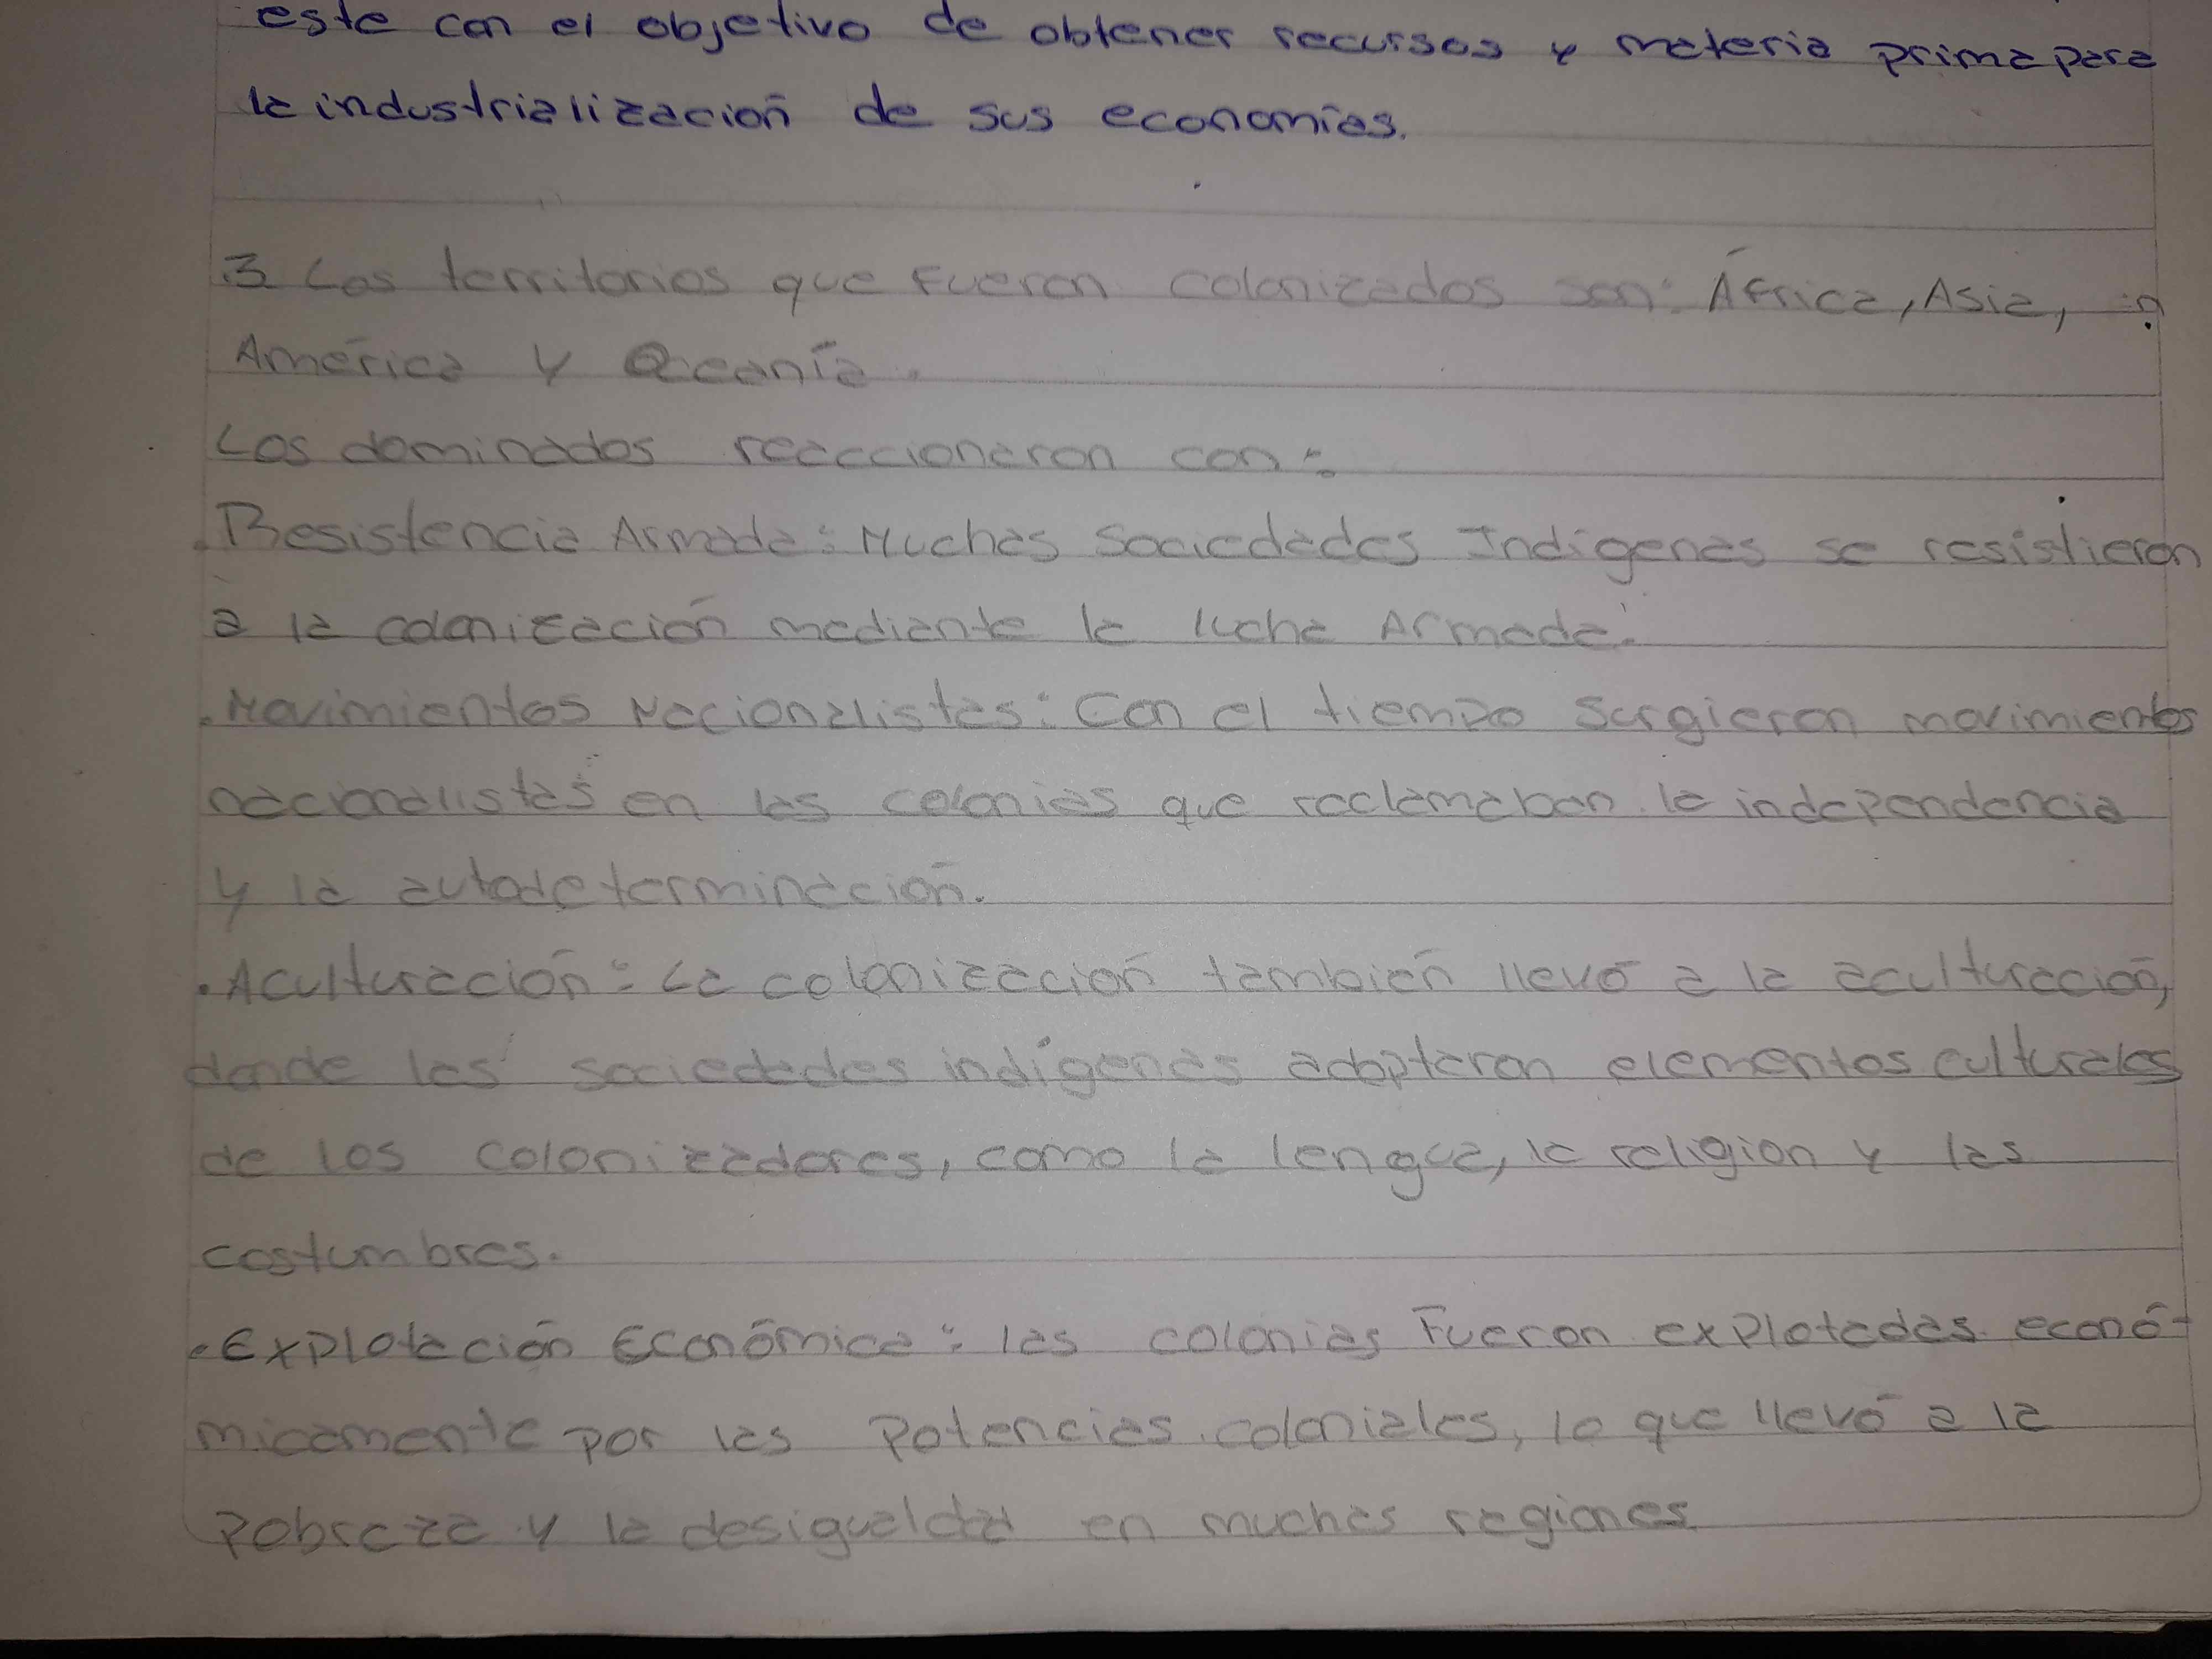 este con el objetivo de obtener recursos y materia prima para
la industrialización de sus economías.
3 Los territorios que fueron colonizados son: África, Asia,
América y Oceanía.
Los dominados reacccionaron con:
. Resistencia Armada: Muchas Sociedades Indígenas se resistieron
a la colonización mediante la lucha Armada.
. Movimientos Nacionalistas: Con el tiempo surgieron movimientos
nacionalistas en las colonias que reclamaban la independencia
y la autodeterminación.
. Aculturación: La colonización también llevó a la aculturación,
donde las sociedades indígenas adoptaron elementos culturales
de los colonizadores, como la lengua, la religion y las
costumbres.
. Explotación Económica: las colonias Fueron explotadas econó-
micamente por las potencias coloniales, lo que llevó a la
pobreza y la desigualdad en muchas regiones